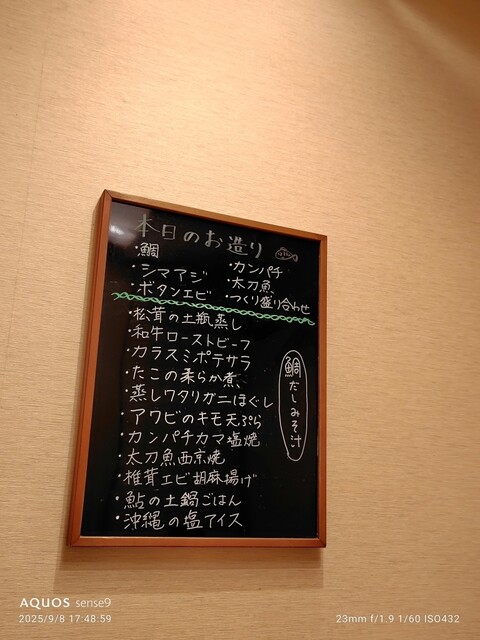 本日のお造り
・鯛
・シマアジ
・ボタンエビ
・カンパチ
・太刀魚
・つくり盛り合わせ
・松茸の土瓶蒸し
・和牛ローストビーフ
・カラスミポテサラ
・たこの柔らか煮
・蒸しワタリガニほぐし
・アワビのキモ天ぷら
・カンパチカマ塩焼
・太刀魚西京焼
・椎茸エビ胡麻揚げ
・鮎の土鍋ごはん
・沖縄の塩アイス
鯛だしみそ汁
AQUOS sense9
2025/9/8 17:48:59
23mm f/1.9 1/60 ISO432